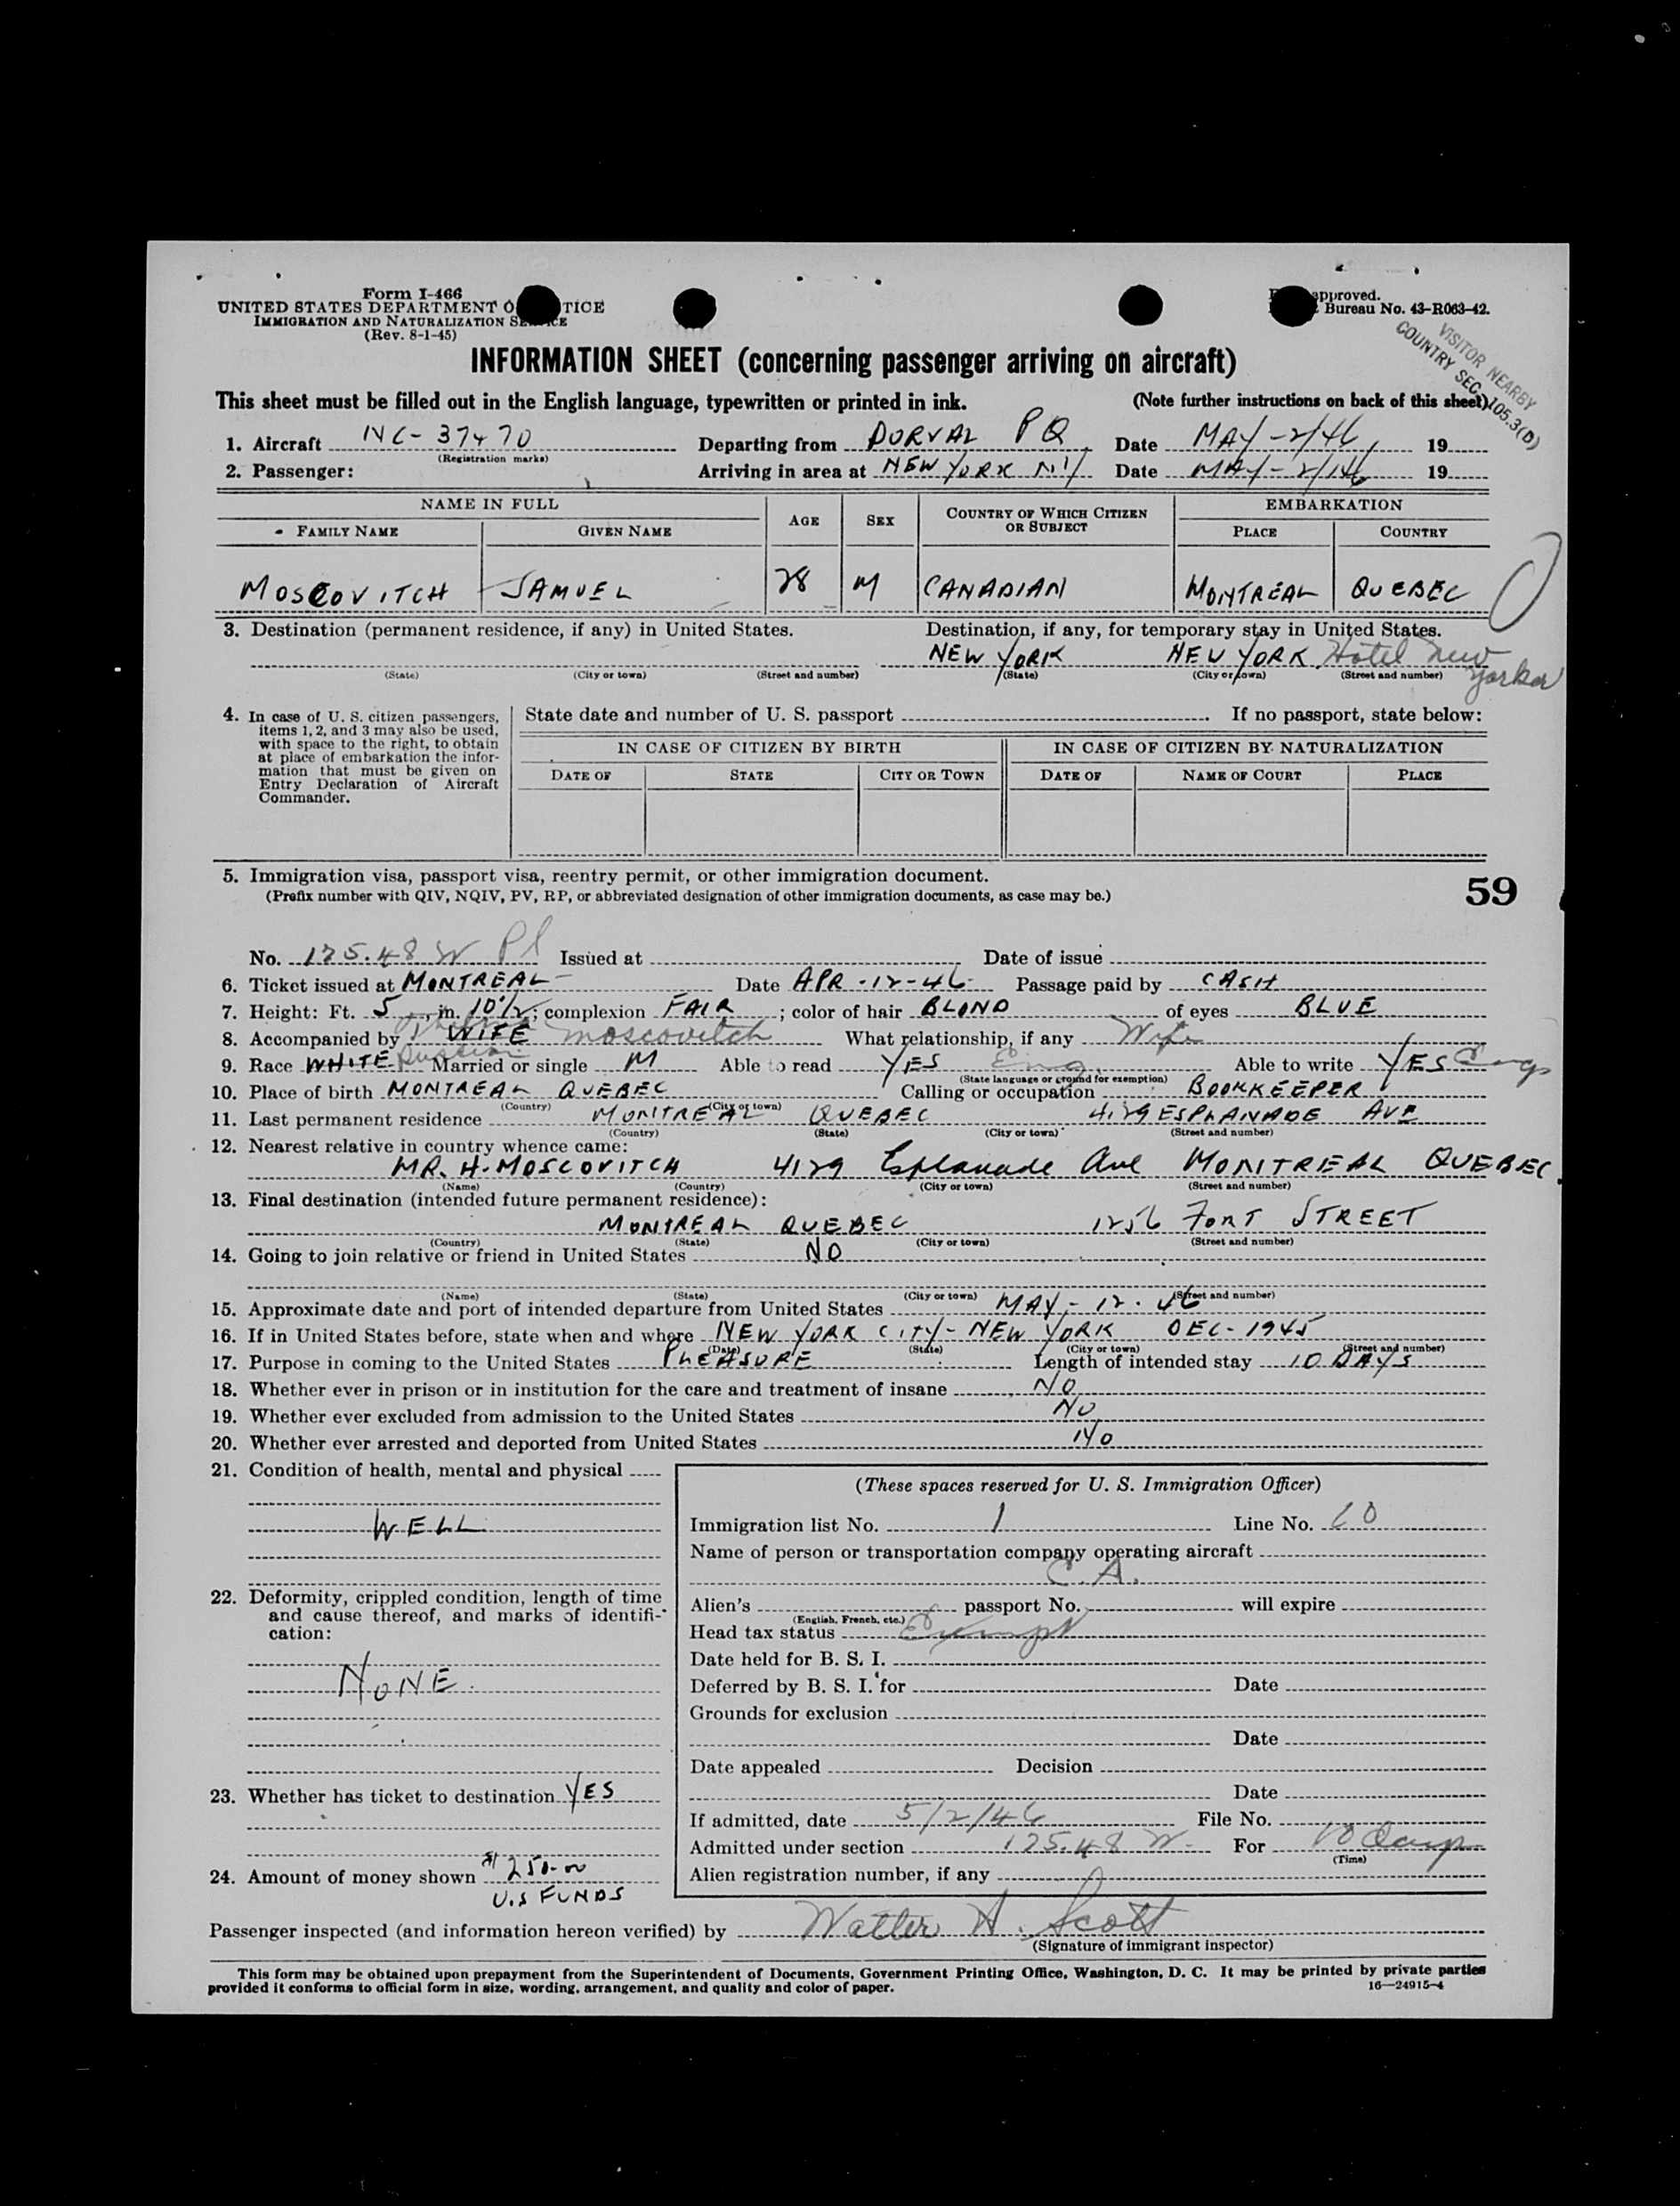 Form I-466
UNITED STATES DEPARTMENT O TICE
IMMIGRATION AND NATURALIZATION SE CE
(Rev. 8-1-45)
approved.
Bureau No. 43-R063-42.
VISITOR NEARBY
COUNTRY SEC. 105.3(D)
INFORMATION SHEET (concerning passenger arriving on aircraft)
This sheet must be filled out in the English language, typewritten or printed in ink. (Note further instructions on back of this sheet)
1. Aircraft NC-37470 Departing from DORVAL PQ Date MAY-2/46 19
(Registration marks)
2. Passenger: Arriving in area at NEW YORK NY Date MAY-2/46 19
NAME IN FULL AGE SEX COUNTRY OF WHICH CITIZEN OR SUBJECT EMBARKATION
FAMILY NAME GIVEN NAME PLACE COUNTRY
MOSCOVITCH SAMUEL 28 M CANADIAN MONTREAL QUEBEC
3. Destination (permanent residence, if any) in United States. Destination, if any, for temporary stay in United States.
NEW YORK NEW YORK Hotel New Yorker
(State) (City or town) (Street and number) (State) (City or town) (Street and number)
4. In case of U. S. citizen passengers, items 1, 2, and 3 may also be used, with space to the right, to obtain at place of embarkation the information that must be given on Entry Declaration of Aircraft Commander.
State date and number of U. S. passport . If no passport, state below:
IN CASE OF CITIZEN BY BIRTH IN CASE OF CITIZEN BY NATURALIZATION
DATE OF STATE CITY OR TOWN DATE OF NAME OF COURT PLACE
5. Immigration visa, passport visa, reentry permit, or other immigration document.
(Prefix number with QIV, NQIV, PV, RP, or abbreviated designation of other immigration documents, as case may be.)
59
No. 125.48 W Pl Issued at Date of issue
6. Ticket issued at MONTREAL Date APR-12-46 Passage paid by CASH
7. Height: Ft. 5, in. 10½; complexion FAIR; color of hair BLOND of eyes BLUE
8. Accompanied by WIFE Moscovitch What relationship, if any Wife
9. Race WHITE Russian Married or single M Able to read YES Eng Able to write YES Eng
(State language or ground for exemption)
10. Place of birth MONTREAL QUEBEC Calling or occupation BOOKKEEPER
(Country) (City or town)
11. Last permanent residence MONTREAL QUEBEC 4129 ESPLANADE AVE
(Country) (State) (City or town) (Street and number)
12. Nearest relative in country whence came:
MR. H. MOSCOVITCH 4129 Esplanade Ave MONTREAL QUEBEC
(Name) (Country) (City or town) (Street and number)
13. Final destination (intended future permanent residence):
MONTREAL QUEBEC 1256 FORT STREET
(Country) (State) (City or town) (Street and number)
14. Going to join relative or friend in United States NO
(Name) (State) (City or town) (Street and number)
15. Approximate date and port of intended departure from United States MAY-12.46
16. If in United States before, state when and where NEW YORK CITY-NEW YORK DEC-1945
(Date) (State) (City or town) (Street and number)
17. Purpose in coming to the United States PLEASURE Length of intended stay 10 DAYS
18. Whether ever in prison or in institution for the care and treatment of insane NO
19. Whether ever excluded from admission to the United States NO
20. Whether ever arrested and deported from United States NO
21. Condition of health, mental and physical
WELL
22. Deformity, crippled condition, length of time and cause thereof, and marks of identification:
NONE.
23. Whether has ticket to destination YES
24. Amount of money shown $250.00
U.S FUNDS
(These spaces reserved for U. S. Immigration Officer)
Immigration list No. 1 Line No.
Name of person or transportation company operating aircraft
C. A.
Alien's passport No. will expire
(English, French, etc.)
Head tax status Exempt
Date held for B. S. I.
Deferred by B. S. I. for Date
Grounds for exclusion
Date
Date appealed Decision
Date
If admitted, date 5/2/46 File No.
Admitted under section 125.48 W. For 10 days
(Time)
Alien registration number, if any
Passenger inspected (and information hereon verified) by Walter A. Scott
(Signature of immigrant inspector)
This form may be obtained upon prepayment from the Superintendent of Documents, Government Printing Office, Washington, D. C. It may be printed by private parties
provided it conforms to official form in size, wording, arrangement, and quality and color of paper. 16—24915-4